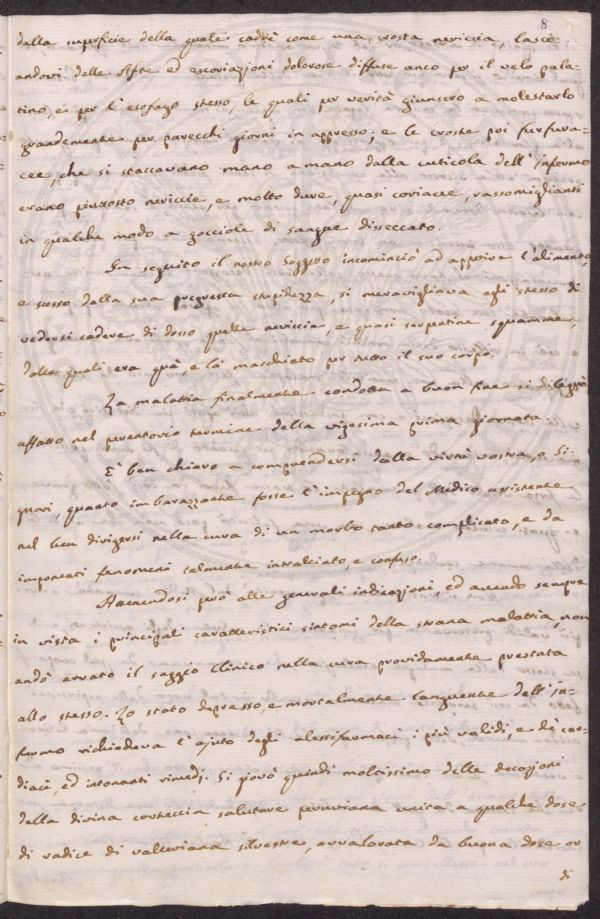 8
dalla superficie della quale caddè come una crosta nericcia, lasci-
andovi delle Afte ed escoriazioni dolorose diffuse anco per il velo pala-
tino, e per l'esofago stesso, le quali per verità giunsero a molestarlo
grandemente per parecchi giorni in appresso; e le croste poi furfura-
cee, che si staccavano mano a mano dalla cuticola dell'Infermo
erano piuttosto nericcie, e molto dure, quasi coriacee, rassomiglianti
in qualche modo a gocciole di sangue disseccato.
In seguito il nostro Soggetto incominciò ad appetire l'alimento,
e scosso dalla sua pregressa stupidezza, si meravigliava egli stesso di
vedersi cadere di dosso quelle nericcie, e quasi serpentine squamme,
dalle quali era quà, e là macchiato per tutto il suo corpo.
La malattia finalmente condotta a buon fine si dileguò
affatto nel perentorio termine della vigesima prima giornata.
E' ben chiaro a comprendersi dalla virtù vostra, o Si-
gnori, quanto imbarazzante fosse l'impegno del Medico assistente
nel ben dirigersi nella cura di un morbo tanto complicato, e da
imponenti fenomeni talmente intralciato, e confuso.
Attenendosi però alle generali indicazioni, ed avendo sempre
in vista i principali caratteristici sintomi della strana malattia, non
andò errato il saggio Clinico nella cura providamente prestata
allo stesso. Lo stato depresso, e mortalmente languente dell'In-
fermo richiedeva l'ajuto degli alessifarmaci i più validi, e de' cor-
diaci, ed intonanti rimedj. Si giovò quindi moltissimo delle decozioni
della divina corteccia salutare peruviana unita a qualche dose
di radice di valeriana silvestre, avvalorata da buona dose or
di